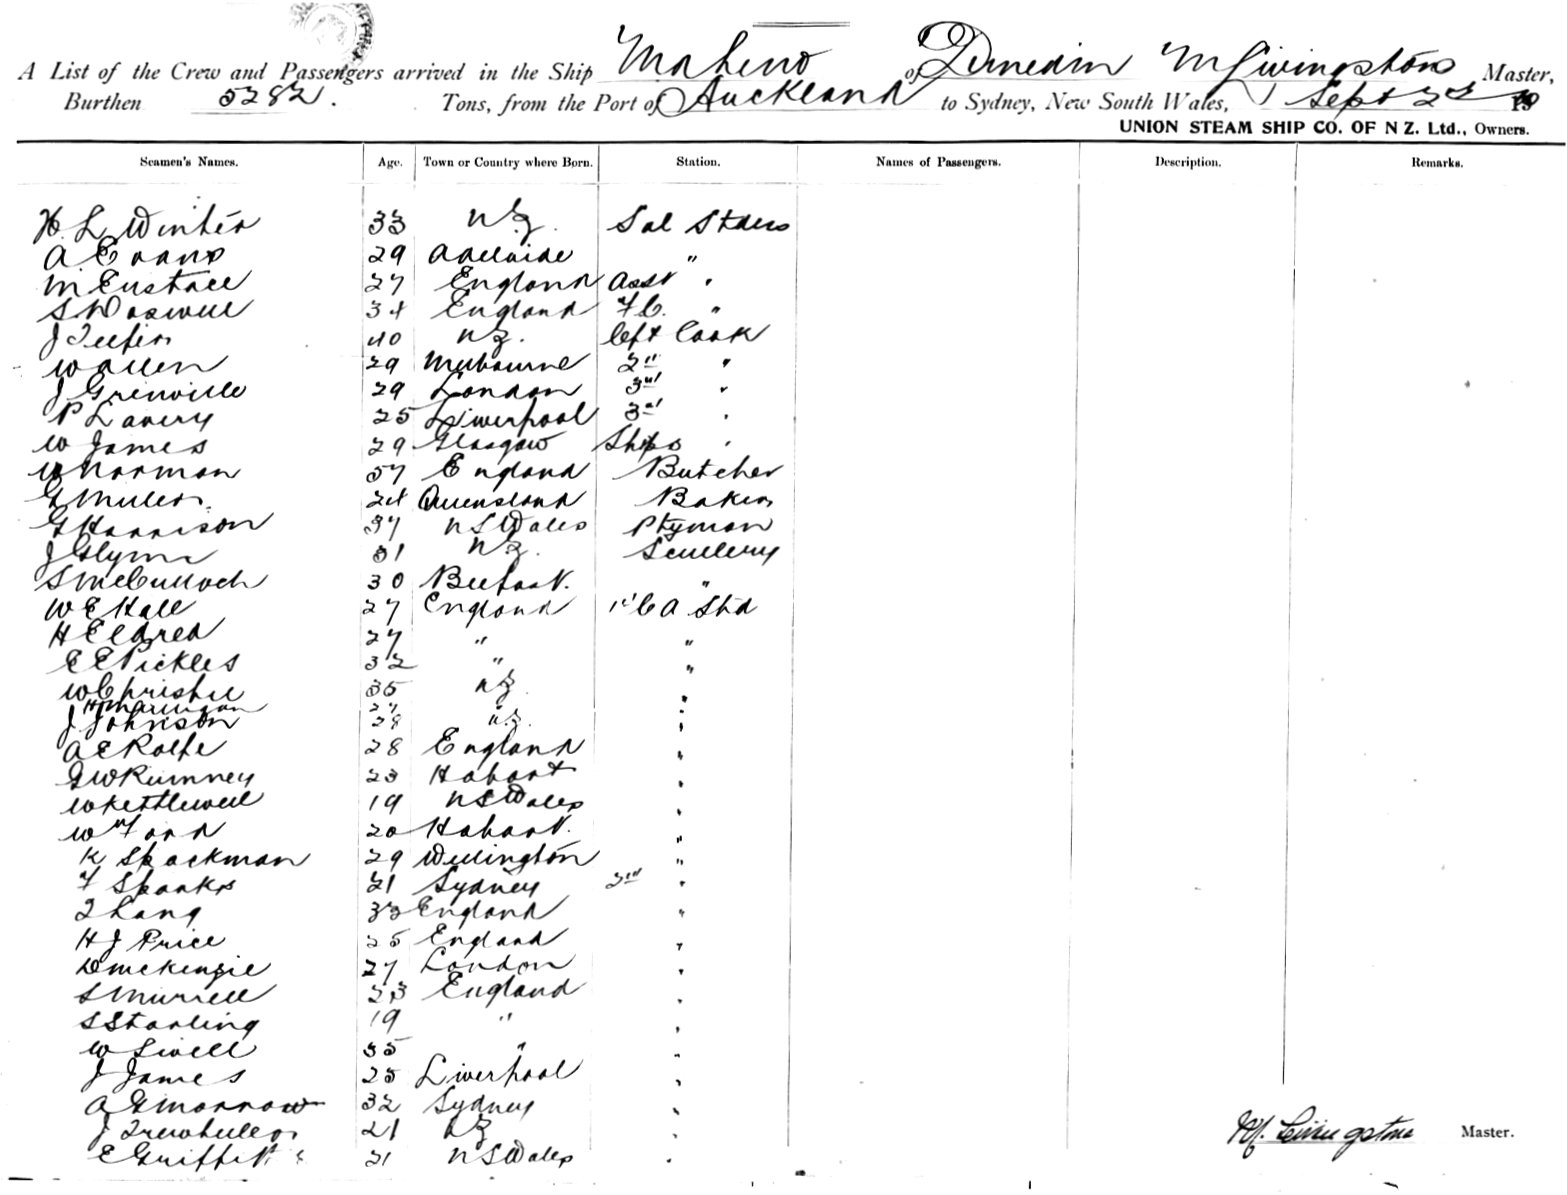 A List of the Crew and Passengers arrived in the Ship Maheno of Dunedin M Livingstone Master,
Burthen 5282. Tons, from the Port of Auckland to Sydney, New South Wales, Sept 2nd 19
UNION STEAM SHIP CO. OF N Z. Ltd., Owners.
Seamen's Names. Age. Town or Country where Born. Station. Names of Passengers. Description. Remarks.
H. L Winter 33 N Z. Sal Stdess
A Evans 29 Adelaide "
M Eustace 27 England Asst "
S W Daswell 34 England F C. "
J 40 N Z. Cook
W Allen 29 Melbourne 2nd "
J Grenville 29 London 3rd "
P Lavery 25 Liverpool 3rd "
W James 29 Glasgow Ships "
W Norman 57 England Butcher
G Muller 24 Queensland Baker
G Harrison 37 N S Wales Ptyman
J Glynn 31 N Z. Scullery
S McCulloch 30 Belfast. "
W E Hall 27 England 1st C A Std
H Eldred 27 " "
E E Pickles 32 " "
W Christie 35 N Z "
H 27 "
J Johnson 28 N Z. "
A E Rolfe 28 England "
G W Rumney 23 Hobart "
W Kettlewell 19 N S Wales "
W Ford 20 Hobart. "
K Spackman 29 Wellington "
F Sparks 21 Sydney 2nd "
T Lang 33 England "
H J Price 25 England "
D McKenzie 27 London "
S Murrell 23 England "
S Starling 19 " "
W Sivell 35 " "
J James 25 Liverpool "
A G Morrow 32 Sydney "
J Trewheeler 21 N Z "
E Griffith 21 N S Wales "
M. Livingstone Master.